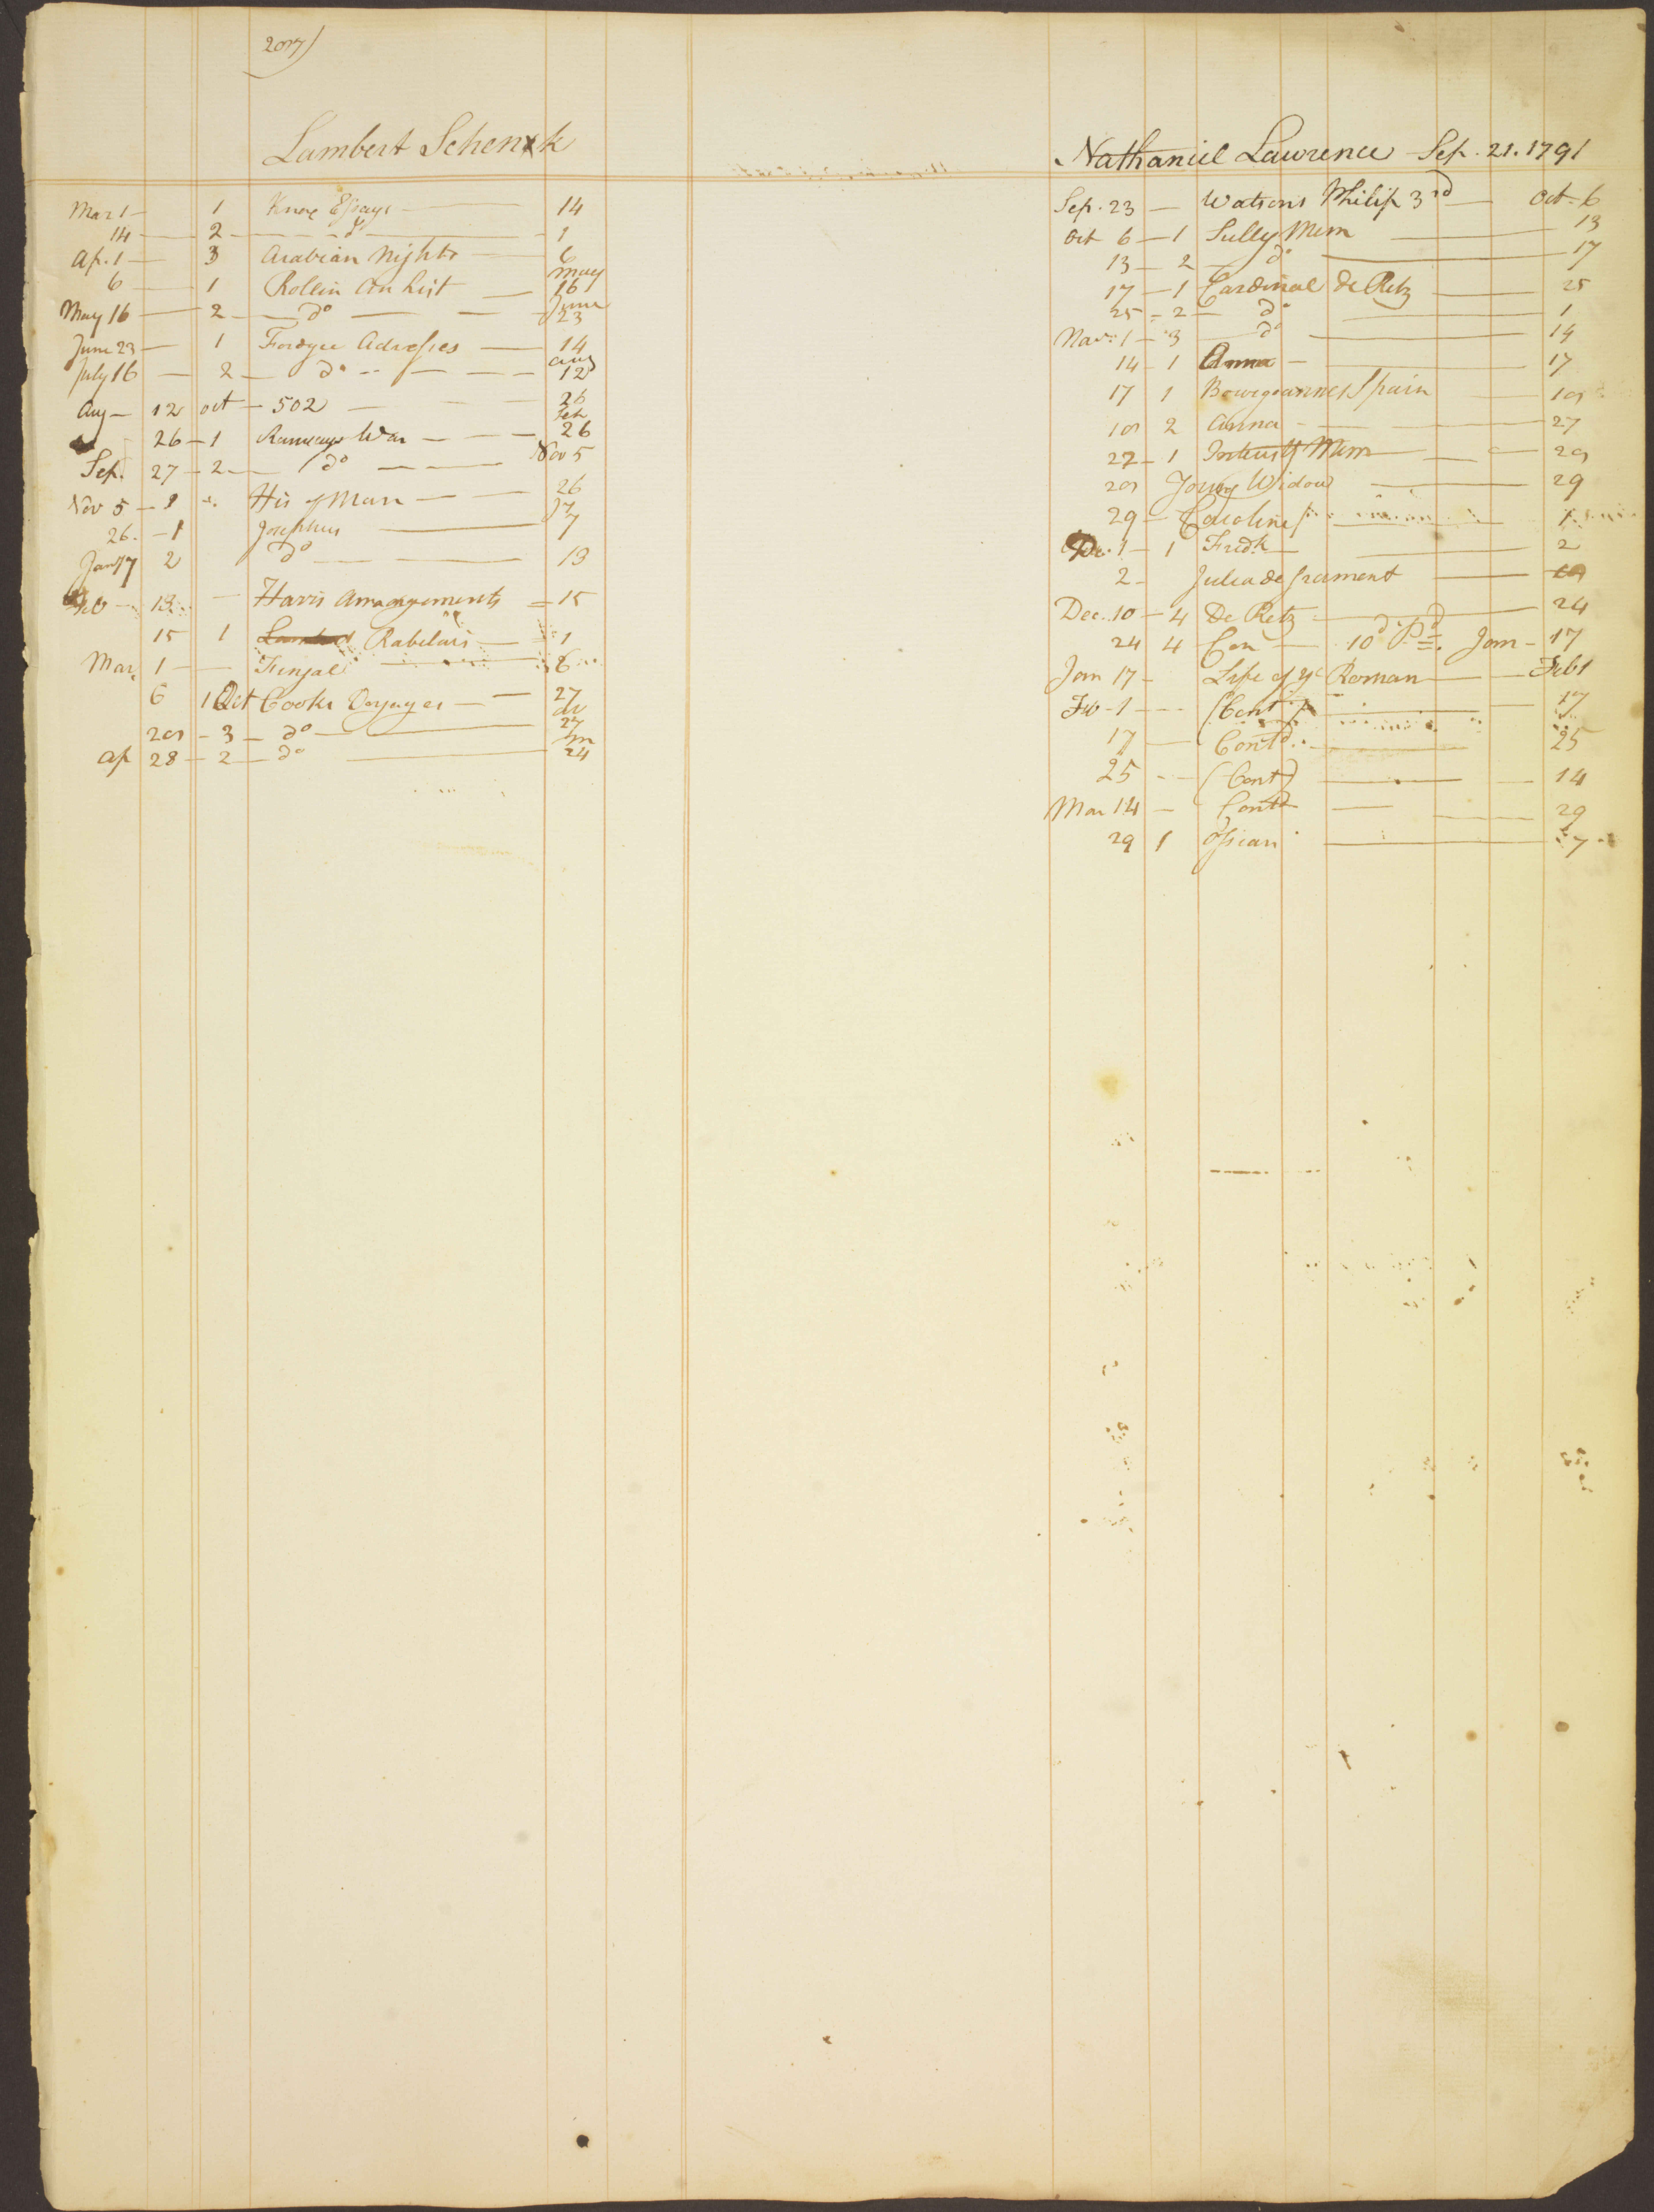 207)
Lambert Schenck
Mar 1 — 1 Knox Essays — 14
14 — 2 — do — 1
Ap. 1 — 3 Arabian Nights — 6
6 — 1 Rollin An hist — May 16
May 16 — 2 — do — June 23
June 23 — 1 Fordyce Adresses — 14
July 16 — 2 — do — Aug 12
Aug — 12 oct — 502 — 26
26 — 1 Ramsays War — Sep 26
Sep. 27 — 2 — do — Nov 5
Nov 5 — 1 His of Man — 26
26. — 1 Josephus — Jy 7
Jany 7 2 do — 13
Feb — 13 — Haris Arrangements — 15
15 1 Rabelais — 1
Mar 1 — Fingal — 6
6 1 Oct Cooks Voyages — 27
209 — 3 — do — 27
Ap 28 — 2 — do — 24
Nathaniel Lawrence Sep. 21. 1791
Sep. 23 — Watsons Philip 3rd — Oct. 6
Oct 6 — 1 Sully Mem — 13
13 — 2 — do — 17
17 — 1 Cardinal de Retz — 25
25 — 2 — do — 1
Nov. 1 — 3 — do — 14
14 — 1 Anna — 17
17 1 Bourgoannes Spain — 19
19 2 Anna — 27
27 — 1 Mem — 29
29 Young Widow — 29
29 — Caroline — 1
Dec. 1 — 1 Fredk — 2
2 — Julia de
Dec. 10 — 4 De Retz — 24
24 4 Con — 10d Pd. Jan — 17
Jan 17 — Life of ye Roman — Feb 1
Feb — 1 — (Cont) — 17
17 — Contd. — 25
25 — (Cont) — 14
Mar 14 — Contd — 29
29 1 Ossian — 7